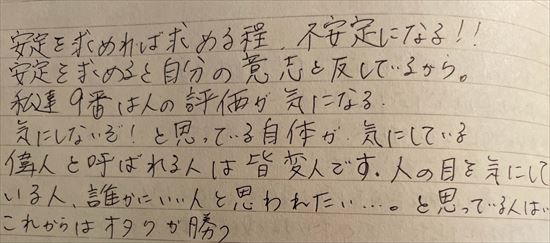 安定を求めれば求める程、不安定になる!!
安定を求めると自分の意志と反しているから。
私達9番は人の評価が気になる.
気にしないぞ!と思っている自体が気にしている
偉人と呼ばれる人は皆変人です.人の目を気にして
いる人、誰かにいい人と思われたい…。と思っている人はい
これからはオタクが勝つ